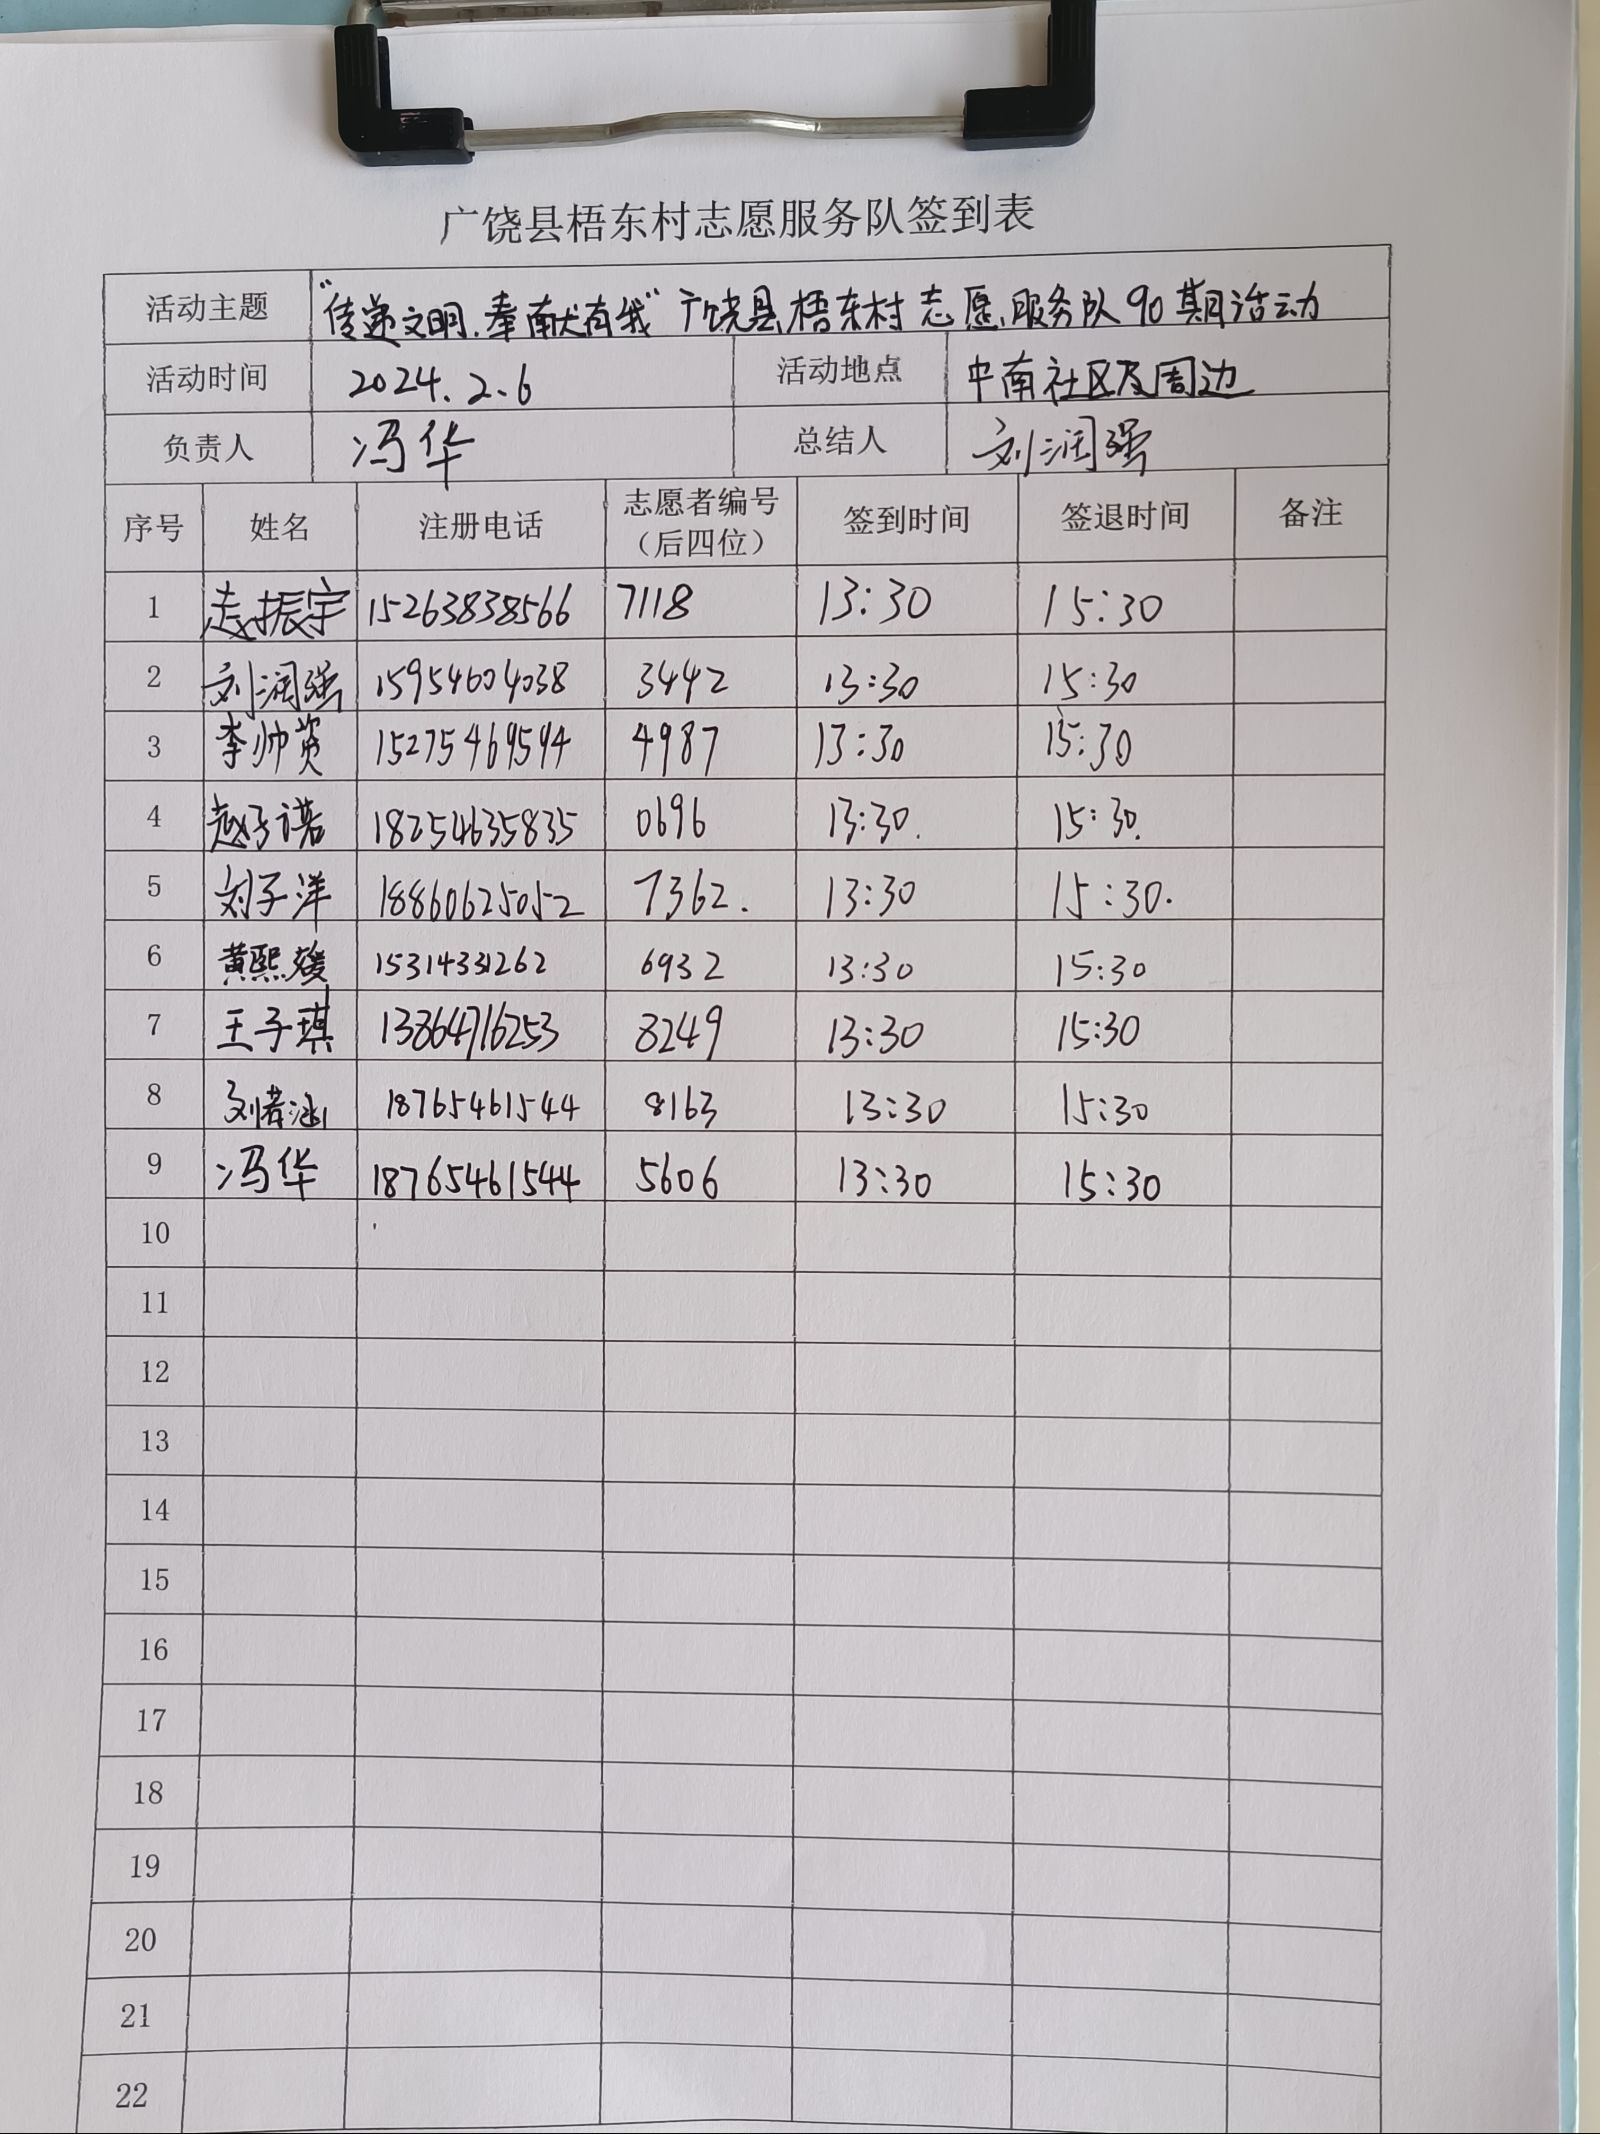 广饶县梧东村志愿服务队签到表
活动主题 “传递文明.奉献有我”广饶县梧东村志愿服务队90期活动
活动时间 2024.2.6 活动地点 中南社区及周边
负责人 冯华 总结人 刘润强
序号 姓名 注册电话 志愿者编号（后四位） 签到时间 签退时间 备注
1 赵振宇 15263838566 7118 13:30 15:30
2 刘润强 15954604038 3442 13:30 15:30
3 李帅 15275469594 4987 13:30 15:30
4 赵子诺 18254635835 0696 13:30. 15:30.
5 刘子洋 18860625052 7362. 13:30 15:30.
6 黄熙媛 15314331262 6932 13:30 15:30
7 王子琪 13864716253 8249 13:30 15:30
8 刘若涵 18765461544 8163 13:30 15:30
9 冯华 18765461544 5606 13:30 15:30
10
11
12
13
14
15
16
17
18
19
20
21
22